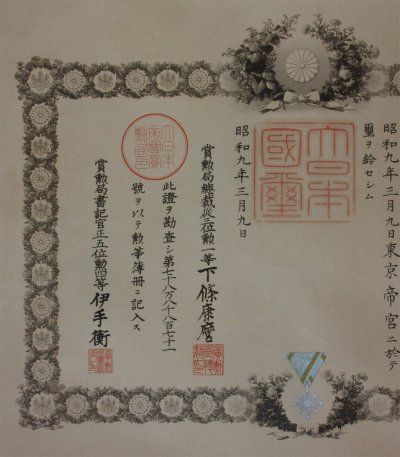 昭和九年三月九日東京帝宮ニ於テ
璽ヲ鈐セシム
大日本國璽
昭和九年三月九日
賞勲局總裁從三位勲一等下條康麿
此證ヲ勘査シ第七十八万八千八百七十一
號ヲ以テ勲等簿冊ニ記入ス
賞勲局書記官正五位勲四等伊手衡